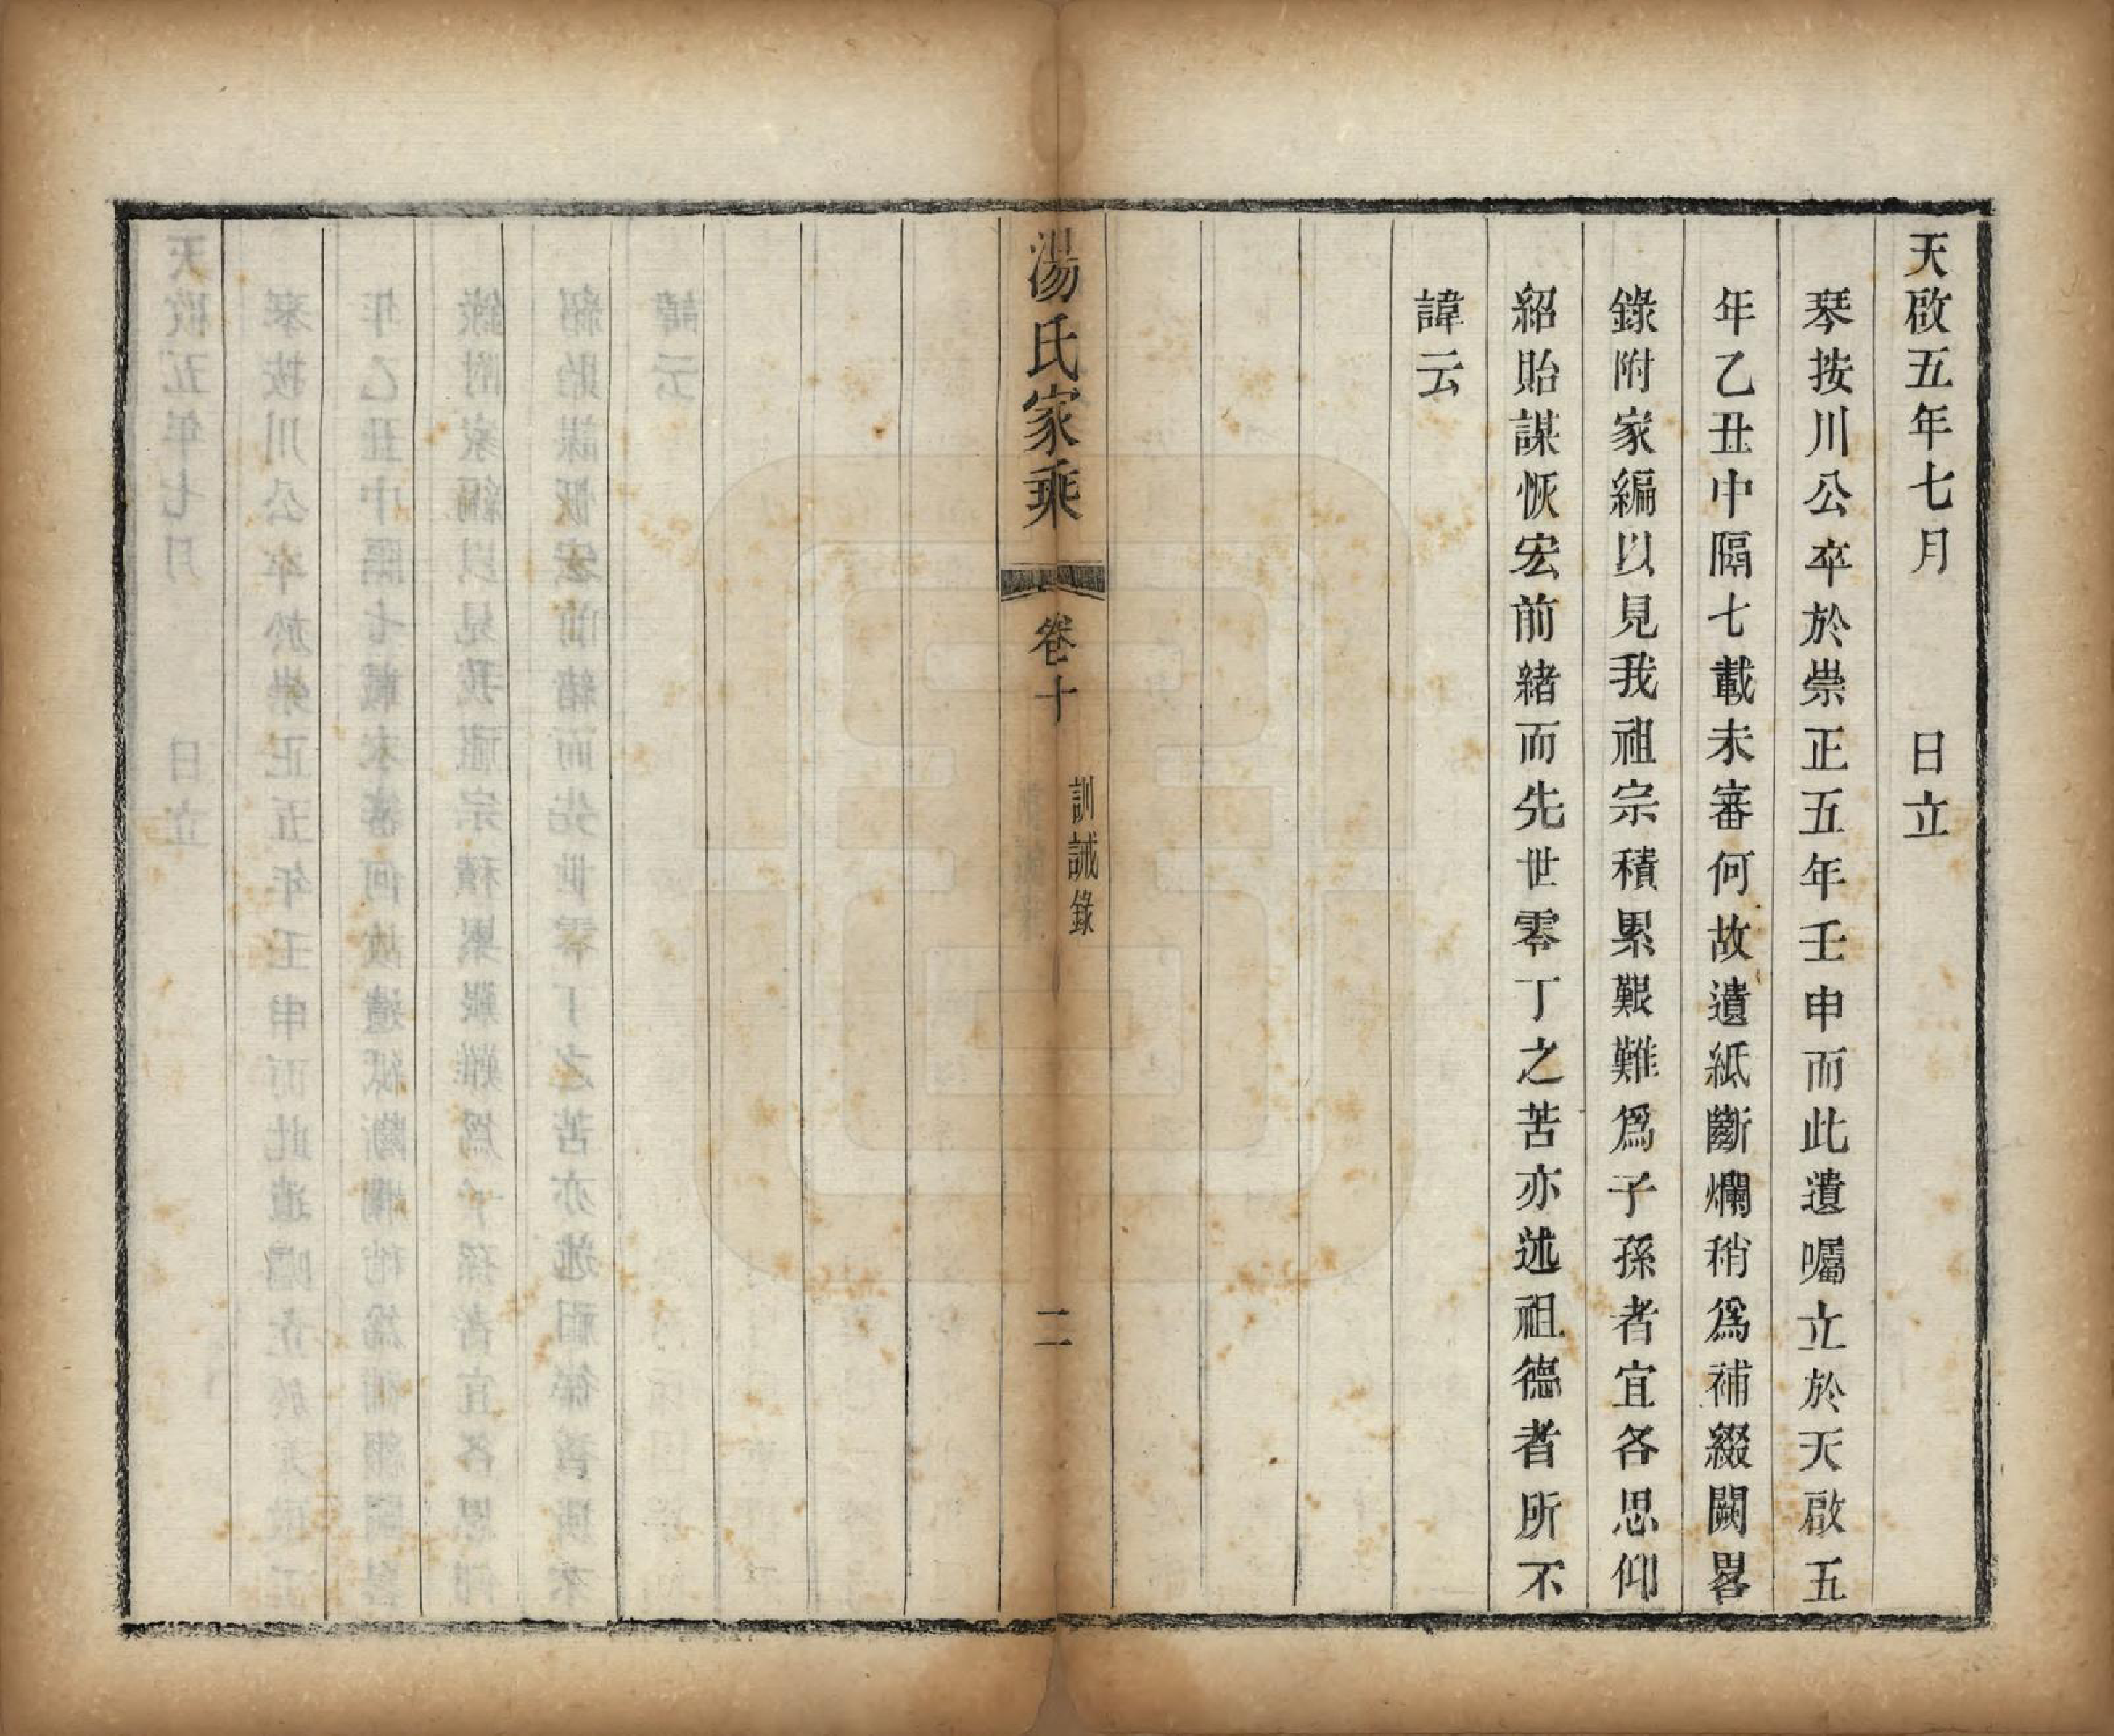 天啟五年七月　　　日立
琴按川公卒於崇正五年壬申而此遺囑立於天啟五
年乙丑中隔七載未審何故遺紙斷爛稍爲補綴闕畧
錄附家編以見我祖宗積累艱難爲子孫者宜各思仰
紹貽謀恢宏前緒而先世零丁之苦亦述祖德者所不
諱云
湯氏家乘　卷十　訓誡錄　二